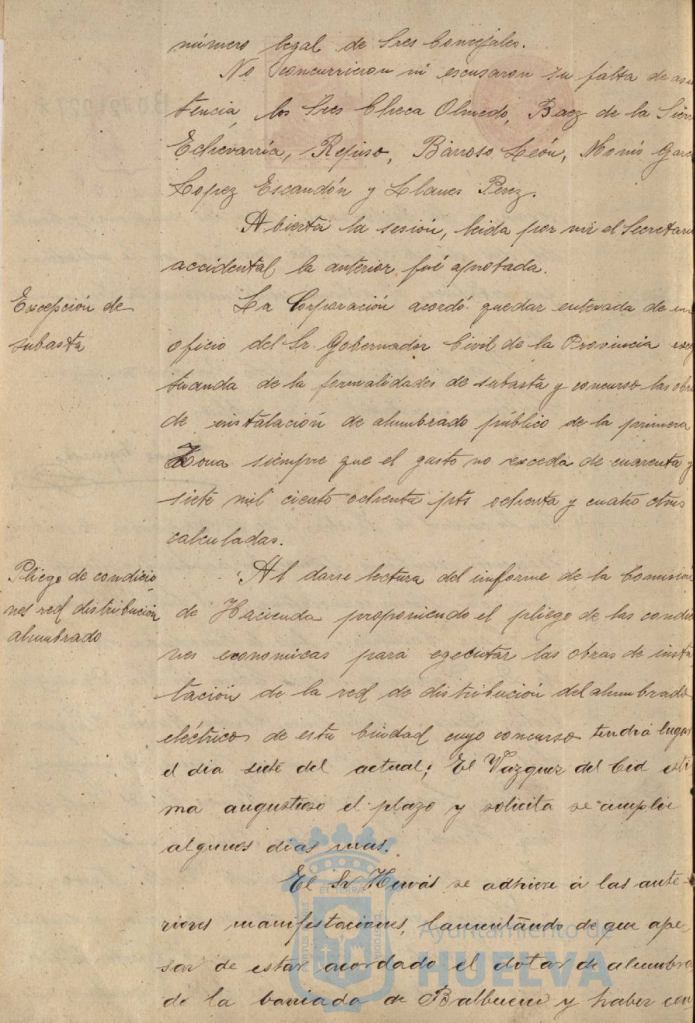 número legal de Sres Concejales.
No concurrieron ni escusaron su falta de asis
tencia, los Sres Checa Olmedo, Baez de la Sierra
Echevarría, Repiso, Barroso León, Garcí
Lopez Escandón y Llanes Perez.
Abierta la sesión, leida por mi el Secretario
accidental la anterior fué aprobada.
Excepción de
subasta
La Corporación acordó quedar enterada de un
oficio del Sr. Gobernador Civil de la Provincia excep
tuando de la formalidades de subasta y concurso las obras
de instalación de alumbrado público de la primera
Zona siempre que el gasto no exceda de cuarenta y
siete mil ciento ochenta pts ochenta y cuatro ctms
calculadas.
Pliego de condicio
nes red distribución
alumbrado
Al darse lectura del informe de la Comisión
de Hacienda proponiendo el pliego de las condicio
nes economicas para egecutar las obras de insta
lación de la red de distribución del alumbrado
eléctrico de esta Ciudad cuyo concurso tendrá lugar
el dia siete del actual; El Vazquez del Cid esti
ma angustioso el plazo y solicita se amplie
algunos dias mas.
El Sr. Hervás se adhiere á las ante-
riores manifestaciones, lamentando de que ape
sar de estar acordado el dotar de alumbra
do la barriada de Balbueno y haber con
Ayuntamiento de
HUELVA